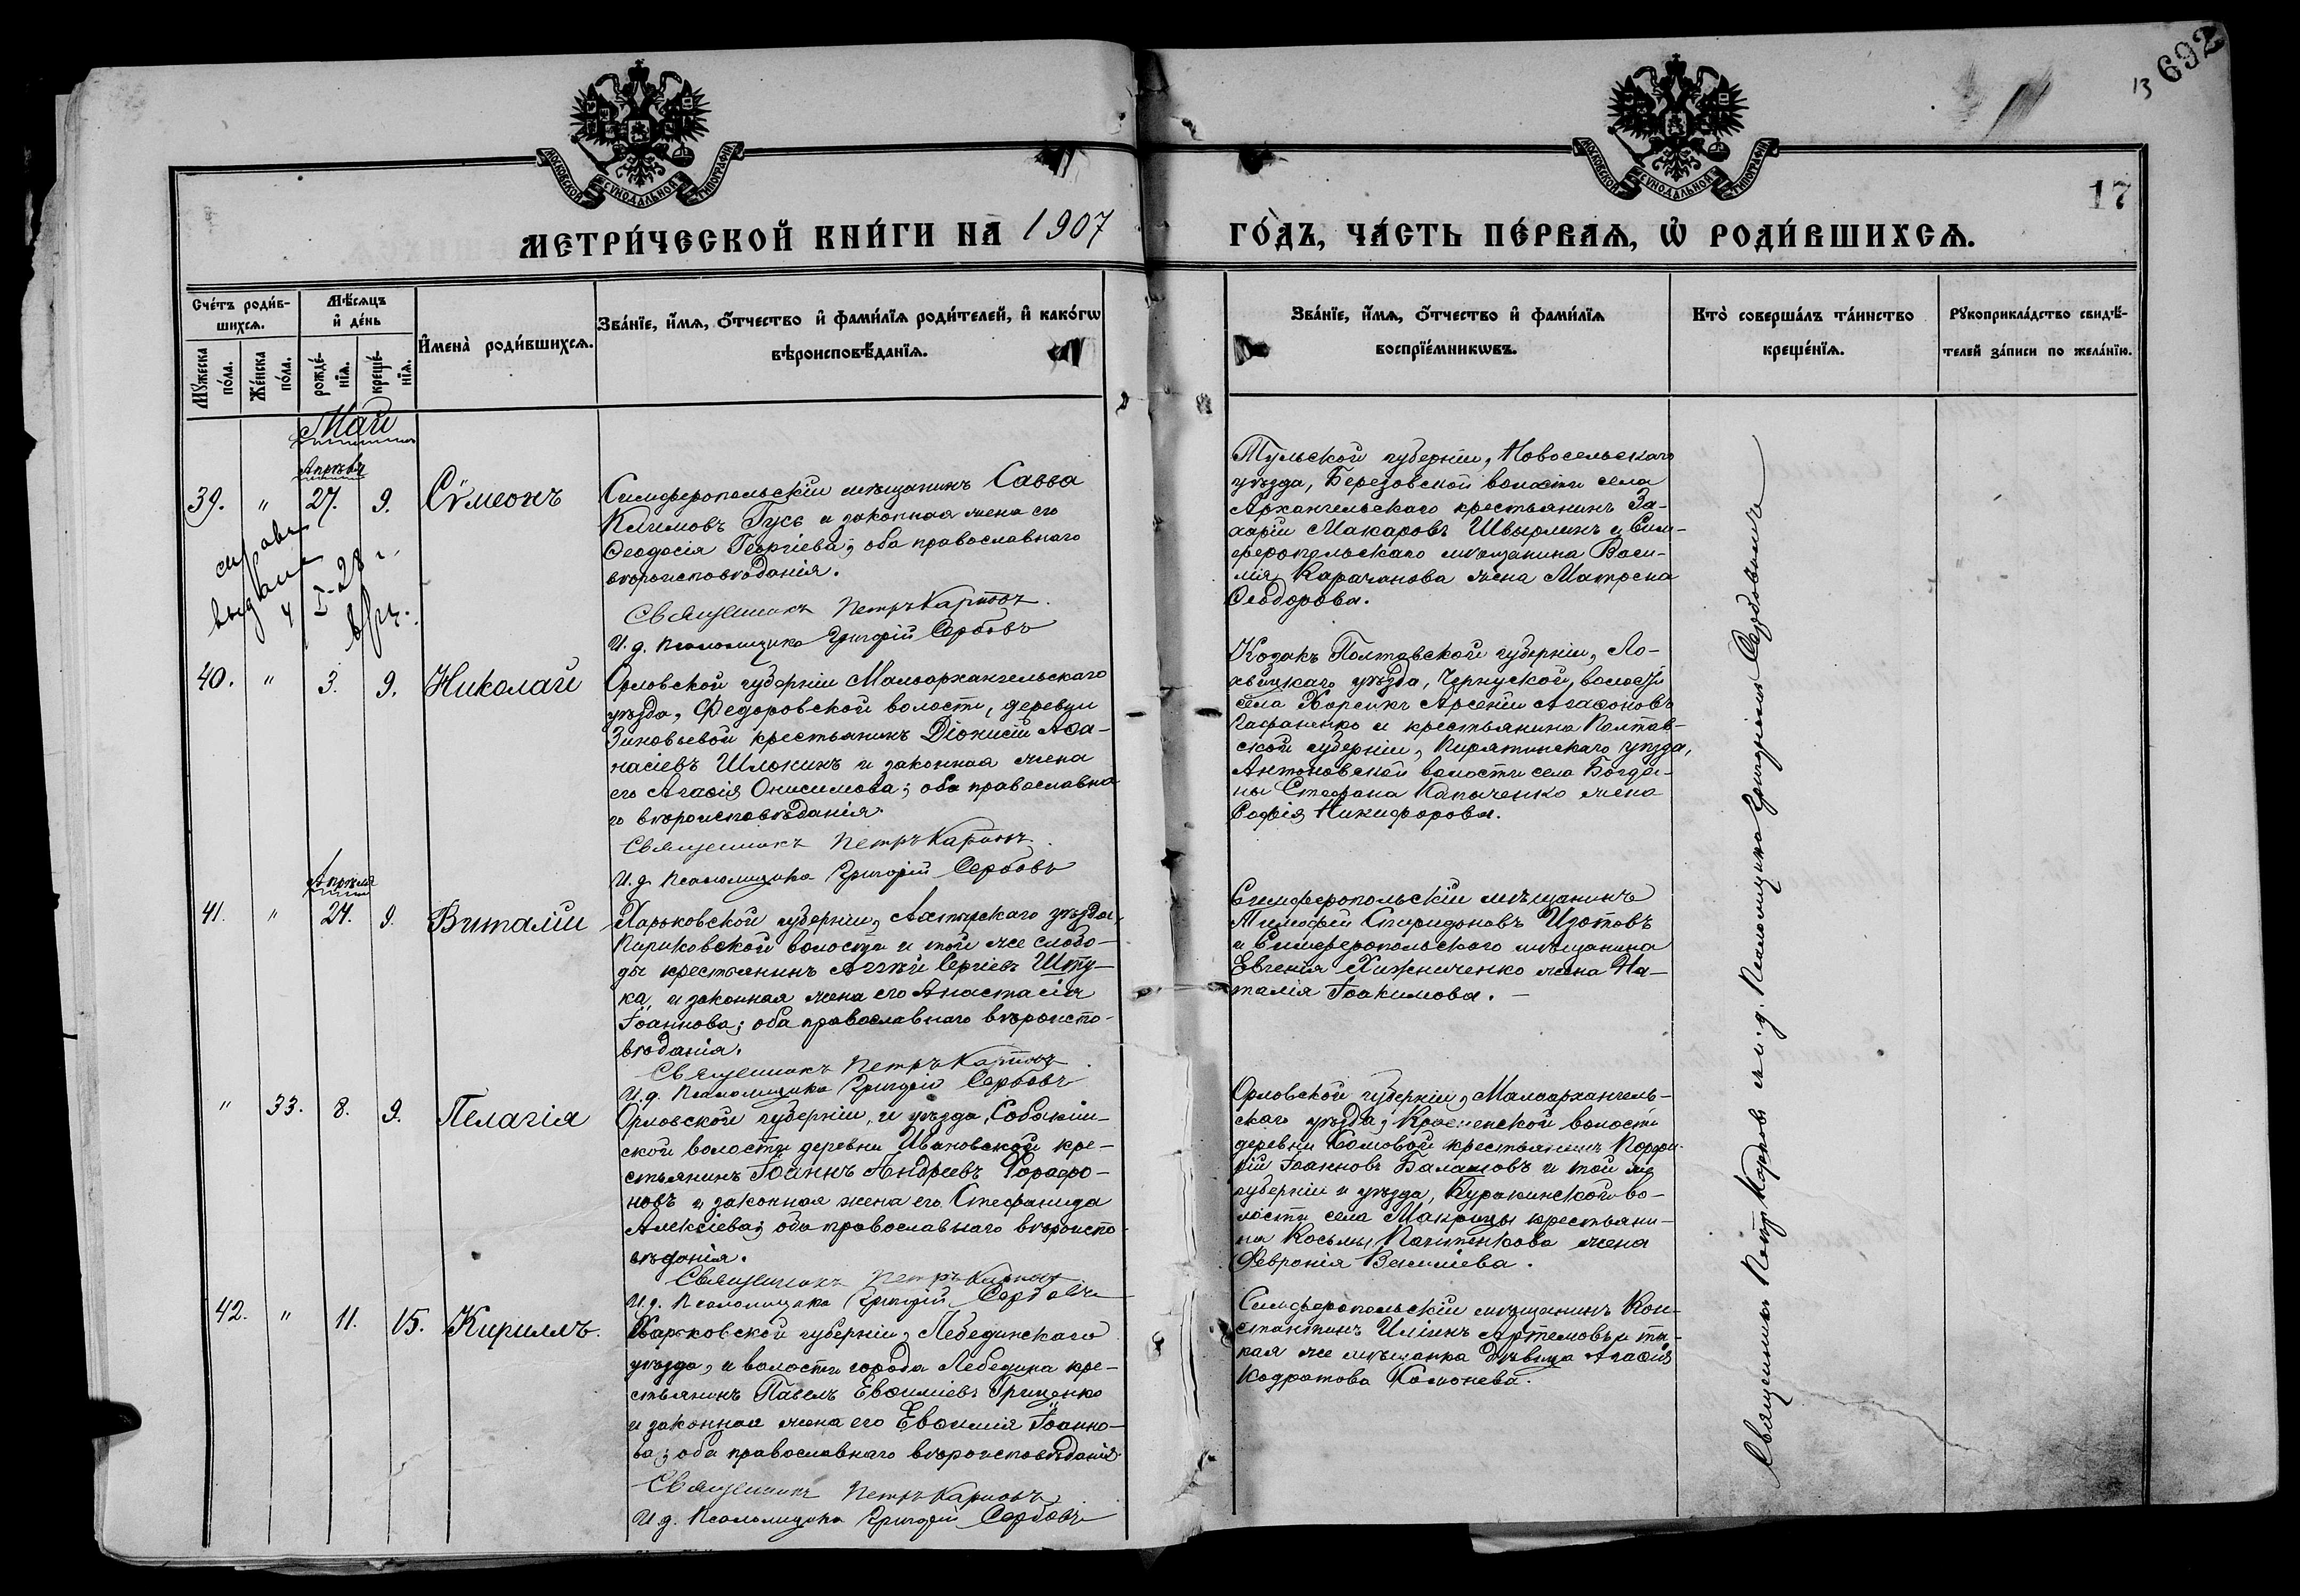 692
13
17
МОСКОВСКОЙ СѴНОДАЛЬНОЙ ТИПОГРАФІИ
МОСКОВСКОЙ СѴНОДАЛЬНОЙ ТИПОГРАФІИ
МЕТРИ́ЧЕСКОЙ КНИ́ГИ НА 1907
ГО́ДЪ, ЧА́СТЬ ПЕ́РВАѦ, Ѡ҆ РОДИ́ВШИХСѦ.
Сче́тъ роди́в-
шихсѧ.
Мꙋ́жеска по́ла.
Же́нска по́ла.
Мѣ́сѧцъ
и҆ де́нь
рожде́-
нїѧ.
креще́-
нїѧ.
И҆мена̀ роди́вшихсѧ.
Зва́нїе, и҆́мѧ, ѻ҆́тчество и҆ фами́лїѧ роди́телей, и҆ како́гѡ
вѣроисповѣ́данїѧ.
Зва́нїе, и҆́мѧ, ѻ҆́тчество и҆ фами́лїѧ
воспрїе́мникѡвъ.
Кто̀ соверша́лъ та́инство
креще́нїѧ.
Рꙋкоприкла́дство свидѣ́-
телей за́писи по жела́нїю.
Май
Апрѣля
39. " 27. 9. Сѷмеонъ
справка
выдана
4 I-28 г.
Симферопольскій мѣщанинъ Савва
Климовъ Гусь и законная жена его
Ѳеодосія Георгіева; оба православнаго
вѣроисповѣданія.
Священникъ Петръ Карповъ.
И. д. Псаломщика Григорій Сербовъ
Тульской губерніи, Новосельскаго
уѣзда, Березовской волости села
Архангельскаго крестьянинъ За-
харій Макаровъ Швырлинъ и Сим-
феропольскаго мѣщанина Васи-
лія Карачанова жена Матрона
Ѳеодорова.
40. " 3. 9. Николай
Орловской губерніи Малоархангельскаго
уѣзда, Федоровской волости, деревни
Зиновьевой крестьянинъ Діонисій Аѳа-
насіевъ Шлокинъ и законная жена
его Агаѳія Онисимова; оба православна-
го вѣроисповѣданія.
Священникъ Петръ Карповъ.
И. д. Псаломщика Григорій Сербовъ
Козакъ Полтавской губерніи, Ло-
хвицкаго уѣзда, Чернуской волости
села Харсикъ Арсеній Агаѳоновъ
Гапаненко и крестьянина Полтав-
ской губерніи, Пирятинскаго уѣзда,
Антоновской волости села Богда-
ны Стефана Капыченко жена
Софія Никифорова.
Апрѣля
41. " 24. 9. Виталій
Харьковской губерніи, Ахтырскаго уѣзда,
Кириковской волости и той же слобо-
ды крестьянинъ Аггѣй Сергіевъ Шту-
ка и законная жена его Анастасія
Іоаннова; оба православнаго вѣроиспо-
вѣданія.
Священникъ Петръ Карповъ
И. д. Псаломщика Григорій Сербовъ
Симферопольскій мѣщанинъ
Тимофей Спиридоновъ Изотовъ
и Симферопольскаго мѣщанина
Евгенія Хижниченко жена На-
талія Іоакимова. —
" 33. 8. 9. Пелагія
Орловской губерніи, и уѣзда, Собакин-
ской волости деревни Ивановской кре-
стьянинъ Іоаннъ Андреевъ Форафо-
новъ и законная жена его Стефанида
Алексіева; оба православнаго вѣроиспо-
вѣданія.
Священникъ Петръ Карповъ
И. д. Псаломщика Григорій Сербовъ
Орловской губерніи, Малоархангель-
скаго уѣзда,
деревни Сомовой крестьянинъ Порфи-
рій Іоанновъ Балашовъ и той же
губерніи и уѣзда, Куракинской во-
лости села Макрецы крестьяни-
на Косьмы жена
Февронія Василіева.
42. " 11. 15. Кириллъ.
Харьковской губерніи, Лебединскаго
уѣзда, и волости города Лебедина кре-
стьянинъ Павелъ Евѳиміевъ Гриценко
и законная жена его Евѳимія Іоанно-
ва; оба православнаго вѣроисповѣданія.
Священникъ Петръ Карповъ
И. д. Псаломщика Григорій Сербовъ
Симферопольскій мѣщанинъ Кон-
стантинъ Иліинъ Артемовъ и та-
кая же мѣщанка дѣвица Агаѳія
Кодратова Самонева.
Священникъ Петръ Карповъ съ и. д. Псаломщика Григоріемъ Сербовымъ